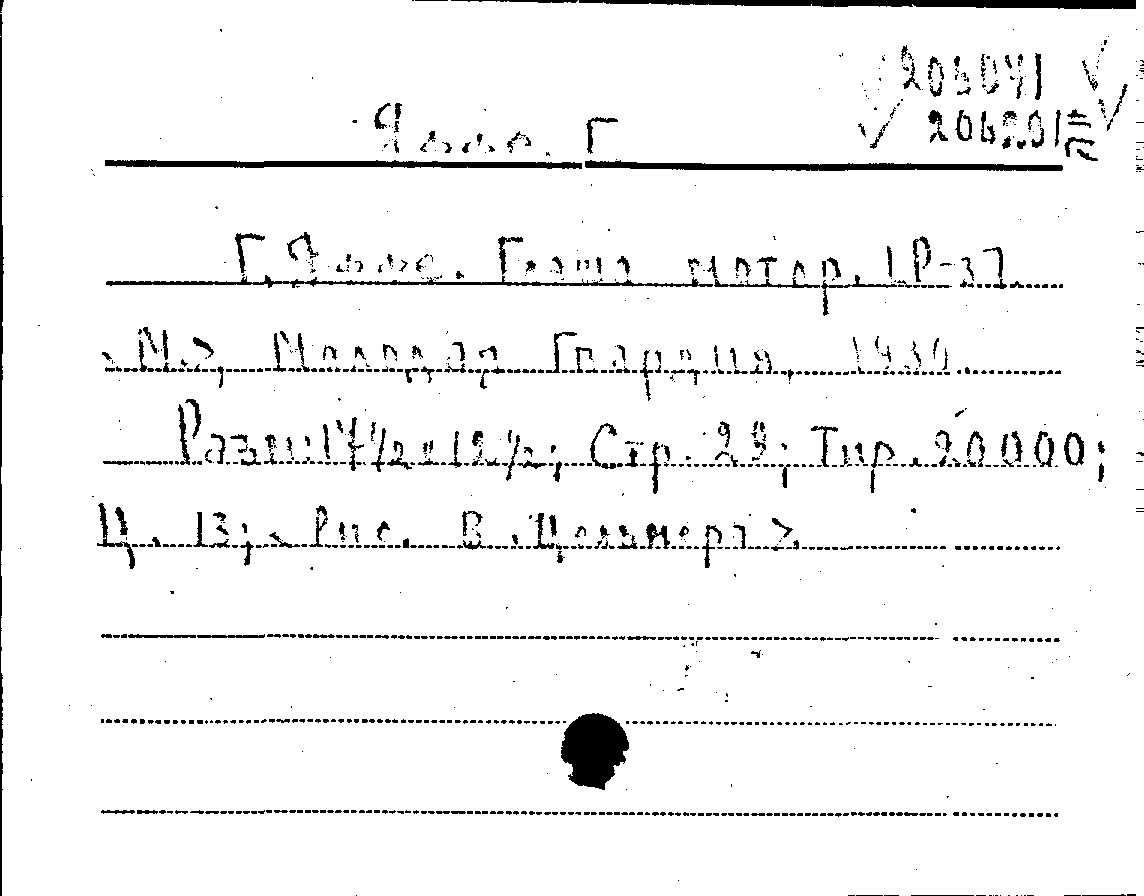 206041
206201=
Яффе. Г
Г. Яффе. Глаша мотор. LP-37.
<М.>, Молодая Гвардия, 1930.
Разм: 17 1/2 х 12 1/2; Стр. 29; Тир. 20000;
Ц. 13; <Рис. В. Цельмера>.